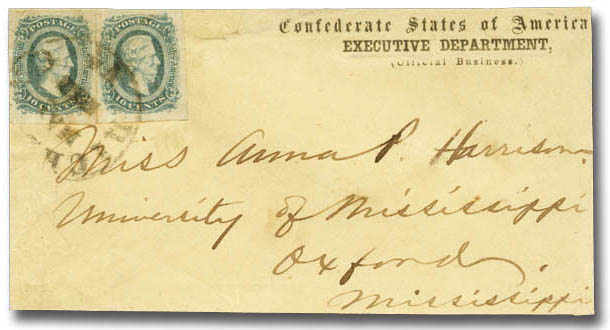 Confederate States of America
EXECUTIVE DEPARTMENT,
(Official Business.)
POSTAGE
10 CENTS
POSTAGE
10 CENTS
Miss Anna P. Harrison
University of Mississippi
Oxford,
Mississippi